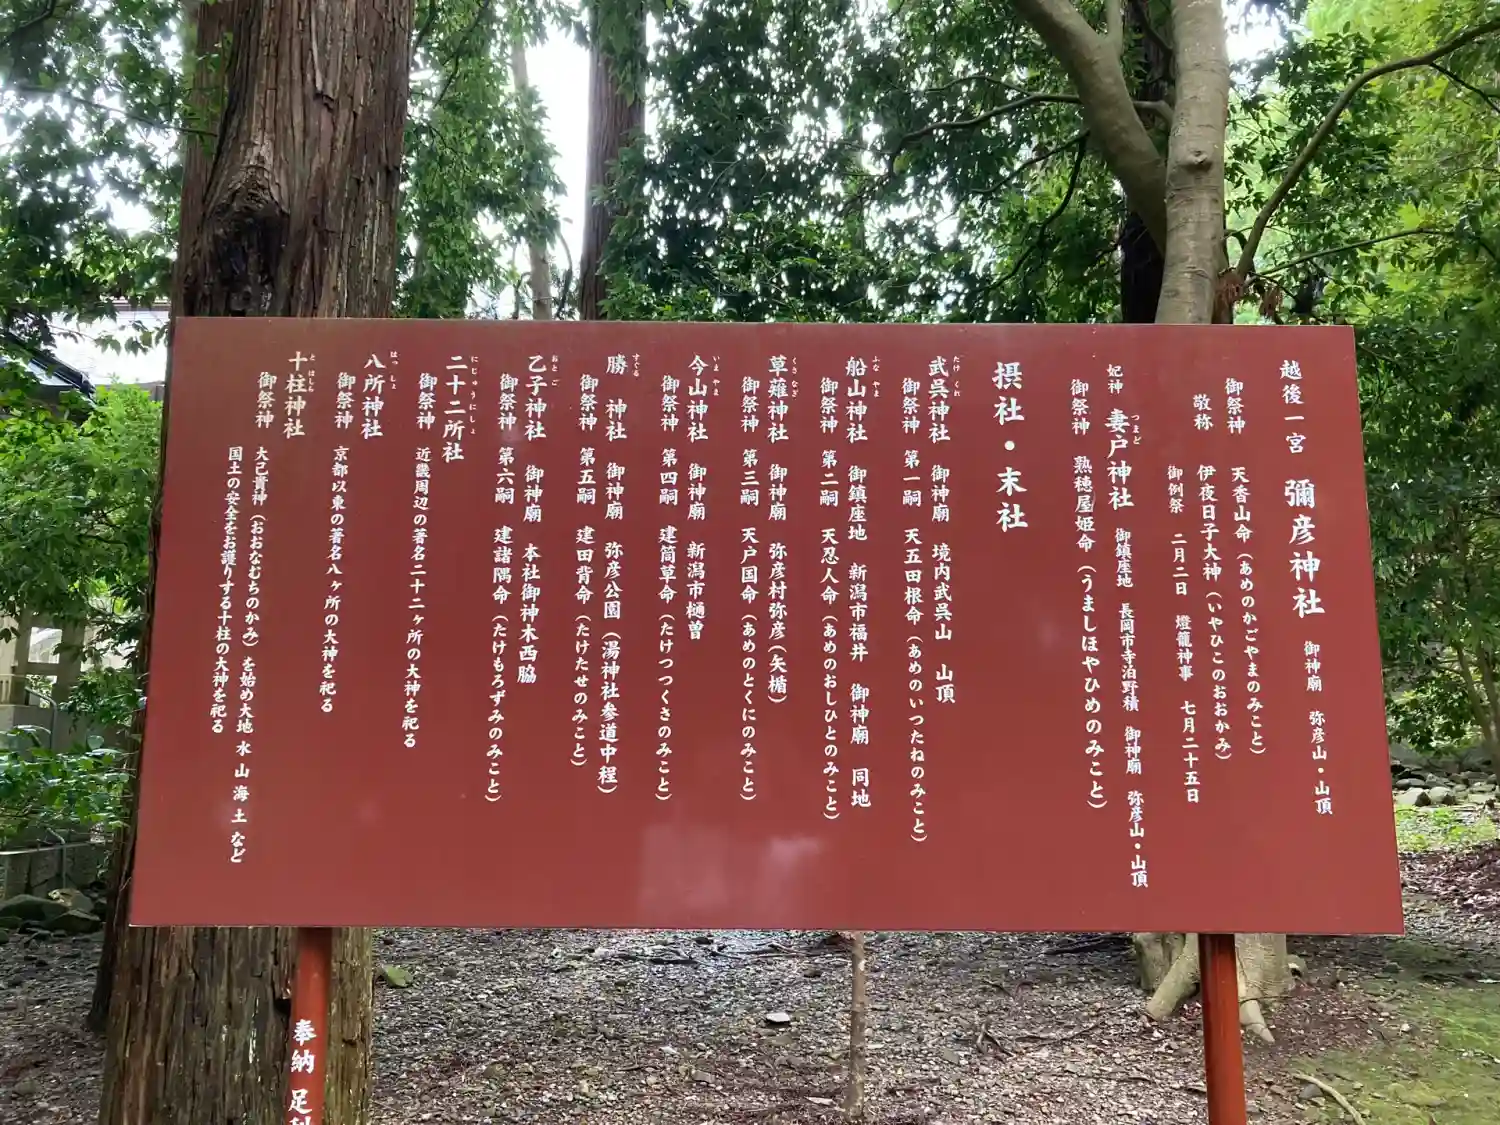 越後一宮 彌彦神社 御神廟 弥彦山・山頂
御祭神 天香山命(あめのかごやまのみこと)
敬称 伊夜日子大神(いやひこのおおかみ)
御例祭 二月二日 燈籠神事 七月二十五日
妃神 妻戸神社 御鎮座地 長岡市寺泊野積 御神廟 弥彦山・山頂
つまど
御祭神 熟穂屋姫命(うましほやひめのみこと)
摂社・末社
武呉神社 御神廟 境内武呉山 山頂
たけ くれ
御祭神 第一嗣 天五田根命(あめのいつたねのみこと)
船山神社 御鎮座地 新潟市福井 御神廟 同地
ふな やま
御祭神 第二嗣 天忍人命(あめのおしひとのみこと)
草薙神社 御神廟 弥彦村弥彦(矢楯)
くさ なぎ
御祭神 第三嗣 天戸国命(あめのとくにのみこと)
今山神社 御神廟 新潟市樋曽
いま やま
御祭神 第四嗣 建筒草命(たけつつくさのみこと)
勝 神社 御神廟 弥彦公園(湯神社参道中程)
すぐる
御祭神 第五嗣 建田背命(たけたせのみこと)
乙子神社 御神廟 本社御神木西脇
おと ご
御祭神 第六嗣 建諸隅命(たけもろずみのみこと)
二十二所社
にじゅうにしょ
御祭神 近畿周辺の著名二十二ヶ所の大神を祀る
八所神社
はっ しょ
御祭神 京都以東の著名八ヶ所の大神を祀る
十柱神社
と はしら
御祭神 大己貴神(おおなむちのかみ)を始め大地 水 山 海 土 など
国土の安全をお護りする十柱の大神を祀る
奉納 足利